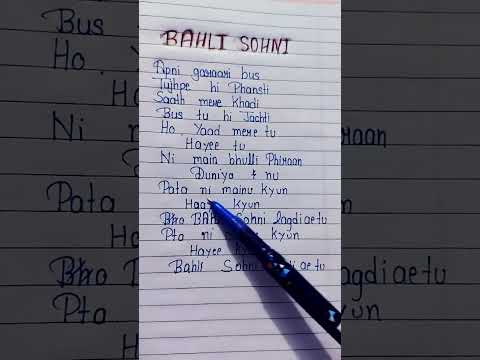 BAHLI SOHNI
Apni garaari bus
Tujhpe hi Phansti
Saath mere Khadi
Bus tu hi Jachti
Ho Yaad mere tu
Hayee tu
Ni main bhulli Phiraan
Duniya + nu
Pata ni mainu kyun
Haa kyun
BAh Sohni lagdi ae tu
Pta ni kyun
Hayee
Bahli Sohni di ae tu